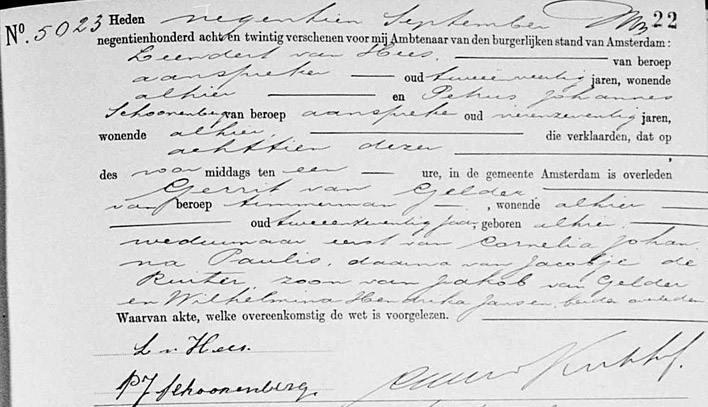 22
Nº. 5023 Heden negentien September
negentienhonderd acht en twintig verschenen voor mij Ambtenaar van den burgerlijken stand van Amsterdam:
Leendert van Hees, van beroep
aanspreker oud tweeenveertig jaren, wonende
alhier en Petrus Johannes
Schoonenberg van beroep aanspreker oud vierenzeventig jaren,
wonende alhier, die verklaarden, dat op
achttien dezer
des voor middags ten een ure, in de gemeente Amsterdam is overleden
Gerrit van Gelder
van beroep timmerman, wonende alhier
oud tweeenzeventig jaar, geboren alhier,
weduwnaar eerst van Cornelia Johan
na Paulis, daarna van Jacobje de
Ruiter, zoon van Jakob van Gelder
en Wilhelmina Hendrika Jansen, beiden overleden
Waarvan akte, welke overeenkomstig de wet is voorgelezen.
L v Hees.
PJ Schoonenberg.